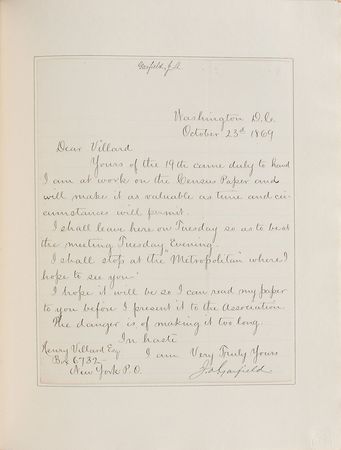 Garfield, J. A.
Washington D.C.
October 23d 1869
Dear Villard
Yours of the 19th came duly to hand
I am at work on the Census Paper and
will make it as valuable as time and cir-
cumstances will permit.
I shall leave here on Tuesday so as to be at
the meeting Tuesday Evening.
I shall stop at the "Metropolitan" where I
hope to see you.
I hope it will be so I can read my paper
to you before I present it to the Association
The danger is of making it too long.
In haste
I am Very Truly Yours
J A Garfield
Henry Villard Esq
Box 6732
New York P.O.